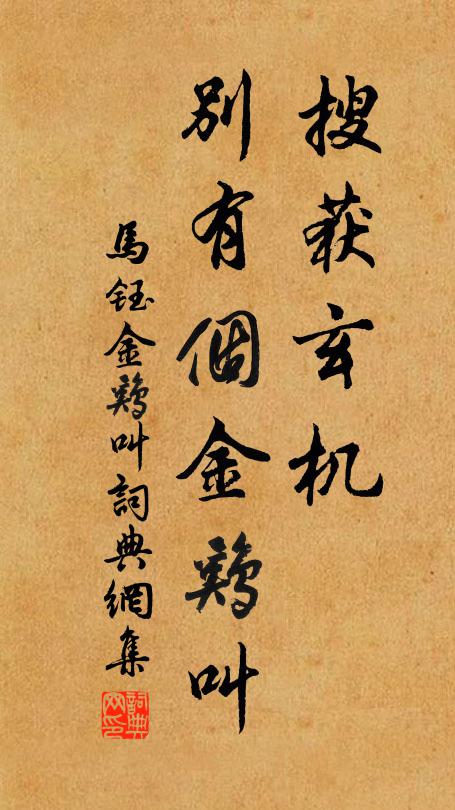 搜获玄机
别有個金鷄叫
馬鈺金鷄叫詞典網集
詞典网印